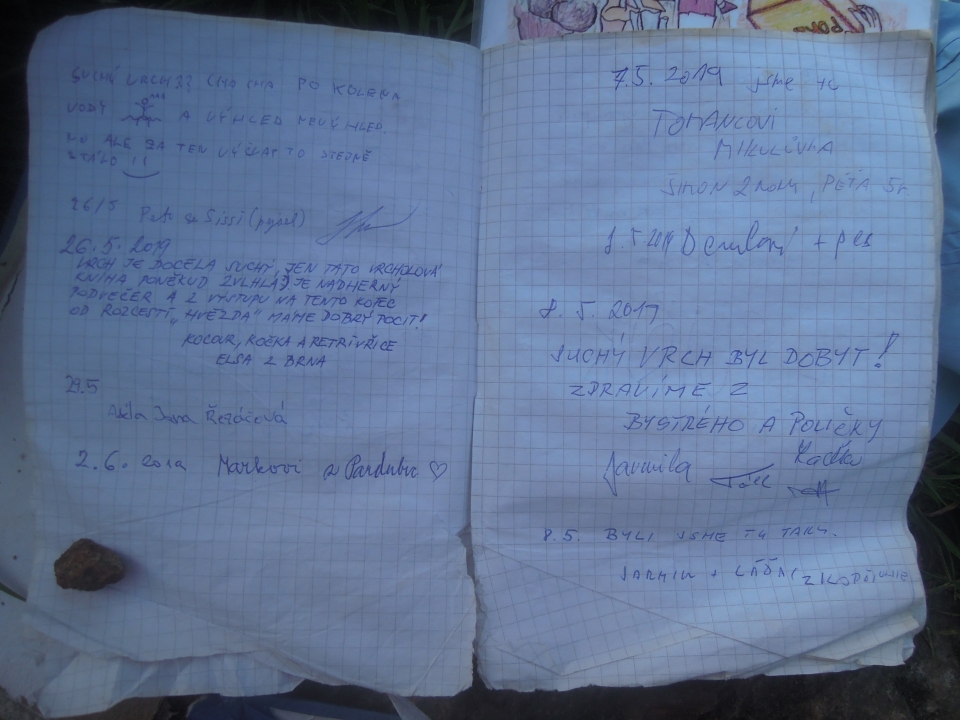 SUCHÝ VRCH?? CHA CHA PO KOLENA
VODY A VÝHLED NEVÝHLED.
NO ALE ZA TEN VÝŠLAP TO STEJNĚ
STÁLO !!
26/5 Petr a Sissi (pejsek)
26.5.2019
VRCH JE DOCELA SUCHÝ, JEN TATO VRCHOLOVÁ
KNIHA PONĚKUD ZVLHLA, JE NÁDHERNÝ
PODVEČER A Z VÝSTUPU NA TENTO KOPEC
OD ROZCESTÍ „HVĚZDA" MÁME DOBRÝ POCIT!
KOCOUR, KOČKA A RETRÍVŘICE
ELSA Z BRNA
29.5
Jana Řezáčová
2.6. 2019 Markovi z Pardubic ♡
7.5. 2019 jsme tu
TOMANCOVI
MIKULŮVKA
ŠIMON 2 roky, PÉŤA 5r
8.5.2019 + pes
8.5. 2019
SUCHÝ VRCH BYL DOBYT!
ZDRAVÍME Z
BYSTRÉHO A POLIČKY
Jarmila Kačka
8.5. BYLI JSME TU TAKY.
+ LÁĎA